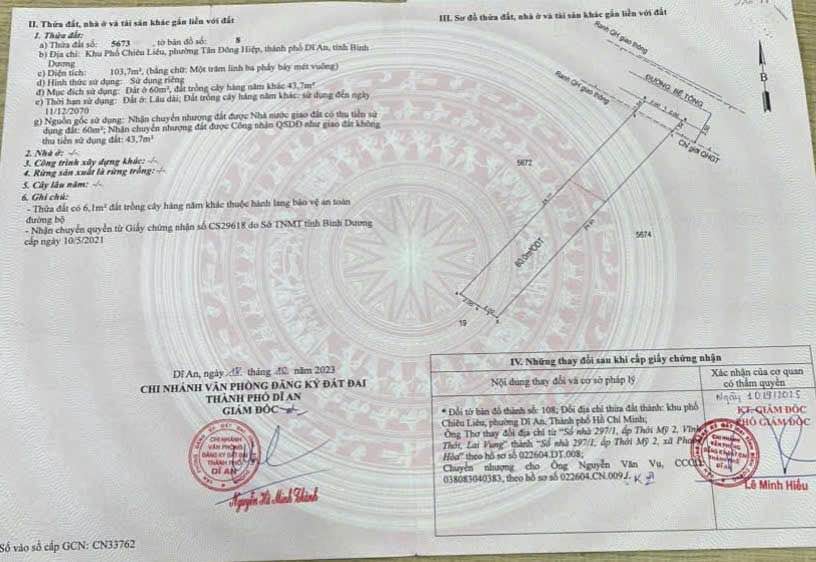 II. Thửa đất, nhà ở và tài sản khác gắn liền với đất
1. Thửa đất:
a) Thửa đất số: 5673 , tờ bản đồ số: 8
b) Địa chỉ: Khu Phố Chiêu Liêu, phường Tân Đông Hiệp, thành phố Dĩ An, tỉnh Bình
Dương
c) Diện tích: 103,7m², (bằng chữ: Một trăm linh ba phẩy bảy mét vuông)
d) Hình thức sử dụng: Sử dụng riêng
đ) Mục đích sử dụng: Đất ở 60m², đất trồng cây hàng năm khác 43,7m²
e) Thời hạn sử dụng: Đất ở: Lâu dài; Đất trồng cây hàng năm khác: sử dụng đến ngày
11/12/2070
g) Nguồn gốc sử dụng: Nhận chuyển nhượng đất được Nhà nước giao đất có thu tiền sử
dụng đất: 60m²; Nhận chuyển nhượng đất được Công nhận QSDĐ như giao đất không
thu tiền sử dụng đất: 43,7m²
2. Nhà ở: -/-
3. Công trình xây dựng khác: -/-
4. Rừng sản xuất là rừng trồng: -/-
5. Cây lâu năm: -/-
6. Ghi chú:
- Thửa đất có 6,1m² đất trồng cây hàng năm khác thuộc hành lang bảo vệ an toàn
đường bộ
- Nhận chuyển quyền từ Giấy chứng nhận số CS29618 do Sở TNMT tỉnh Bình Dương
cấp ngày 10/5/2021
Dĩ An, ngày tháng năm 2023
CHI NHÁNH VĂN PHÒNG ĐĂNG KÝ ĐẤT ĐAI
THÀNH PHỐ DĨ AN
GIÁM ĐỐC
CHI NHÁNH
VĂN PHÒNG
ĐĂNG KÝ ĐẤT ĐAI
THÀNH PHỐ
DĨ AN
Nguyễn Hà Minh Thành
Số vào sổ cấp GCN: CN33762
III. Sơ đồ thửa đất, nhà ở và tài sản khác gắn liền với đất
Ranh QH giao thông
Ranh QH giao thông
ĐƯỜNG BÊ TÔNG
B
Chỉ giới QHGT
5672
5674
60.0m²/ODT
19
IV. Những thay đổi sau khi cấp giấy chứng nhận
Nội dung thay đổi và cơ sở pháp lý
Xác nhận của cơ quan
có thẩm quyền
* Đổi tờ bản đồ thành số: 108; Đổi địa chỉ thửa đất thành: khu phố
Chiêu Liêu, phường Dĩ An, Thành phố Hồ Chí Minh;
Ông Thơ thay đổi địa chỉ từ "Số nhà 297/1, ấp Thới Mỹ 2, Vĩnh
Thới, Lai Vung" thành "Số nhà 297/1, ấp Thới Mỹ 2, xã
Hòa" theo hồ sơ số 022604.DT.008;
Chuyển nhượng cho Ông Nguyễn Văn Vụ, CCCD:
038083040383, theo hồ sơ số 022604.CN.009
Ngày 10/9/2025
KT.GIÁM ĐỐC
PHÓ GIÁM ĐỐC
Lê Minh Hiếu